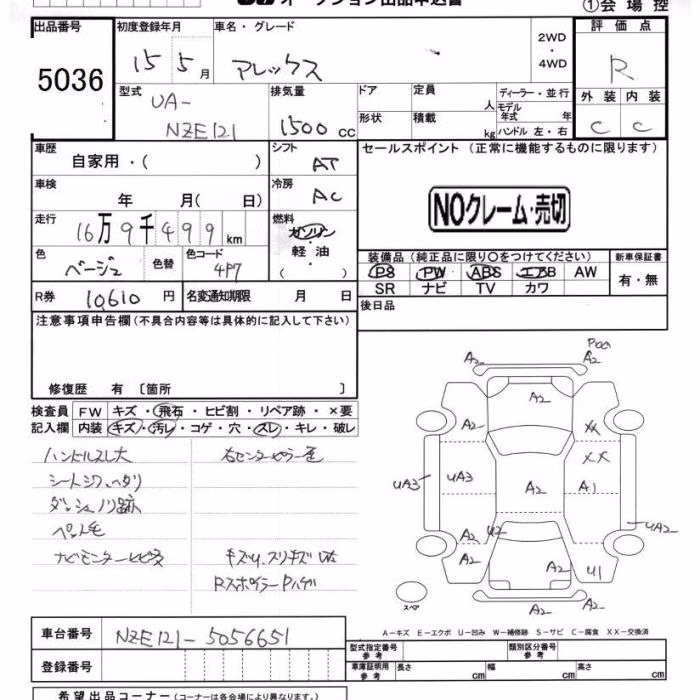 オークション出品申込書
①会場控
出品番号 初度登録年月 車名・グレード 評価点
5036 15 5月 アレックス 2WD・4WD R
型式 排気量 ドア 定員 人 ディーラー・並行 外装 内装
UA- NZE121 1500cc 形状 積載 kg モデル年式 年 ハンドル 左・右 C C
車歴 自家用・( ) シフト AT セールスポイント (正常に機能するものに限ります)
車検 年 月( 日) 冷房 AC
NOクレーム・売切
走行 16万9千499km 燃料 ガソリン・軽油 ( )
色 ベージュ 色替 色コード 4P7
装備品 (純正品に限り〇をつけてください) 新車保証書
PS PW ABS エアB AW 有・無
SR ナビ TV カワ
R券 10,610円 名変通知期限 月 日 後日品
注意事項申告欄 (不具合内容等は具体的に記入して下さい)
修復歴 有 〔箇所 〕
検査員 FW キズ・飛石・ヒビ割・リペア跡・×要
記入欄 内装 キズ・汚レ・コゲ・穴・スレ・キレ・破レ
ハンドルスレ大
シートシワ、ヘタリ
ダッシュノリ跡
ペット毛
ナビモニターヒビ多 キズU、スリキズ
RスポイラーPハゲ
A2 A2 A2
A2 XX
XX
UA3 UA3 A2 A1 UA2
A2 U2
A2 A2 U1
A2 A2
スペア
A-キズ E-エクボ U-凹み W-補修跡 S-サビ C-腐食 XX-交換済
車台番号 NZE121-5056651
型式指定番号 参考 類別区分番号 参考
登録番号 車庫証明用 参考 長さ cm 幅 cm 高さ cm
希望出品コーナー (コーナーは各会場により異なります。)